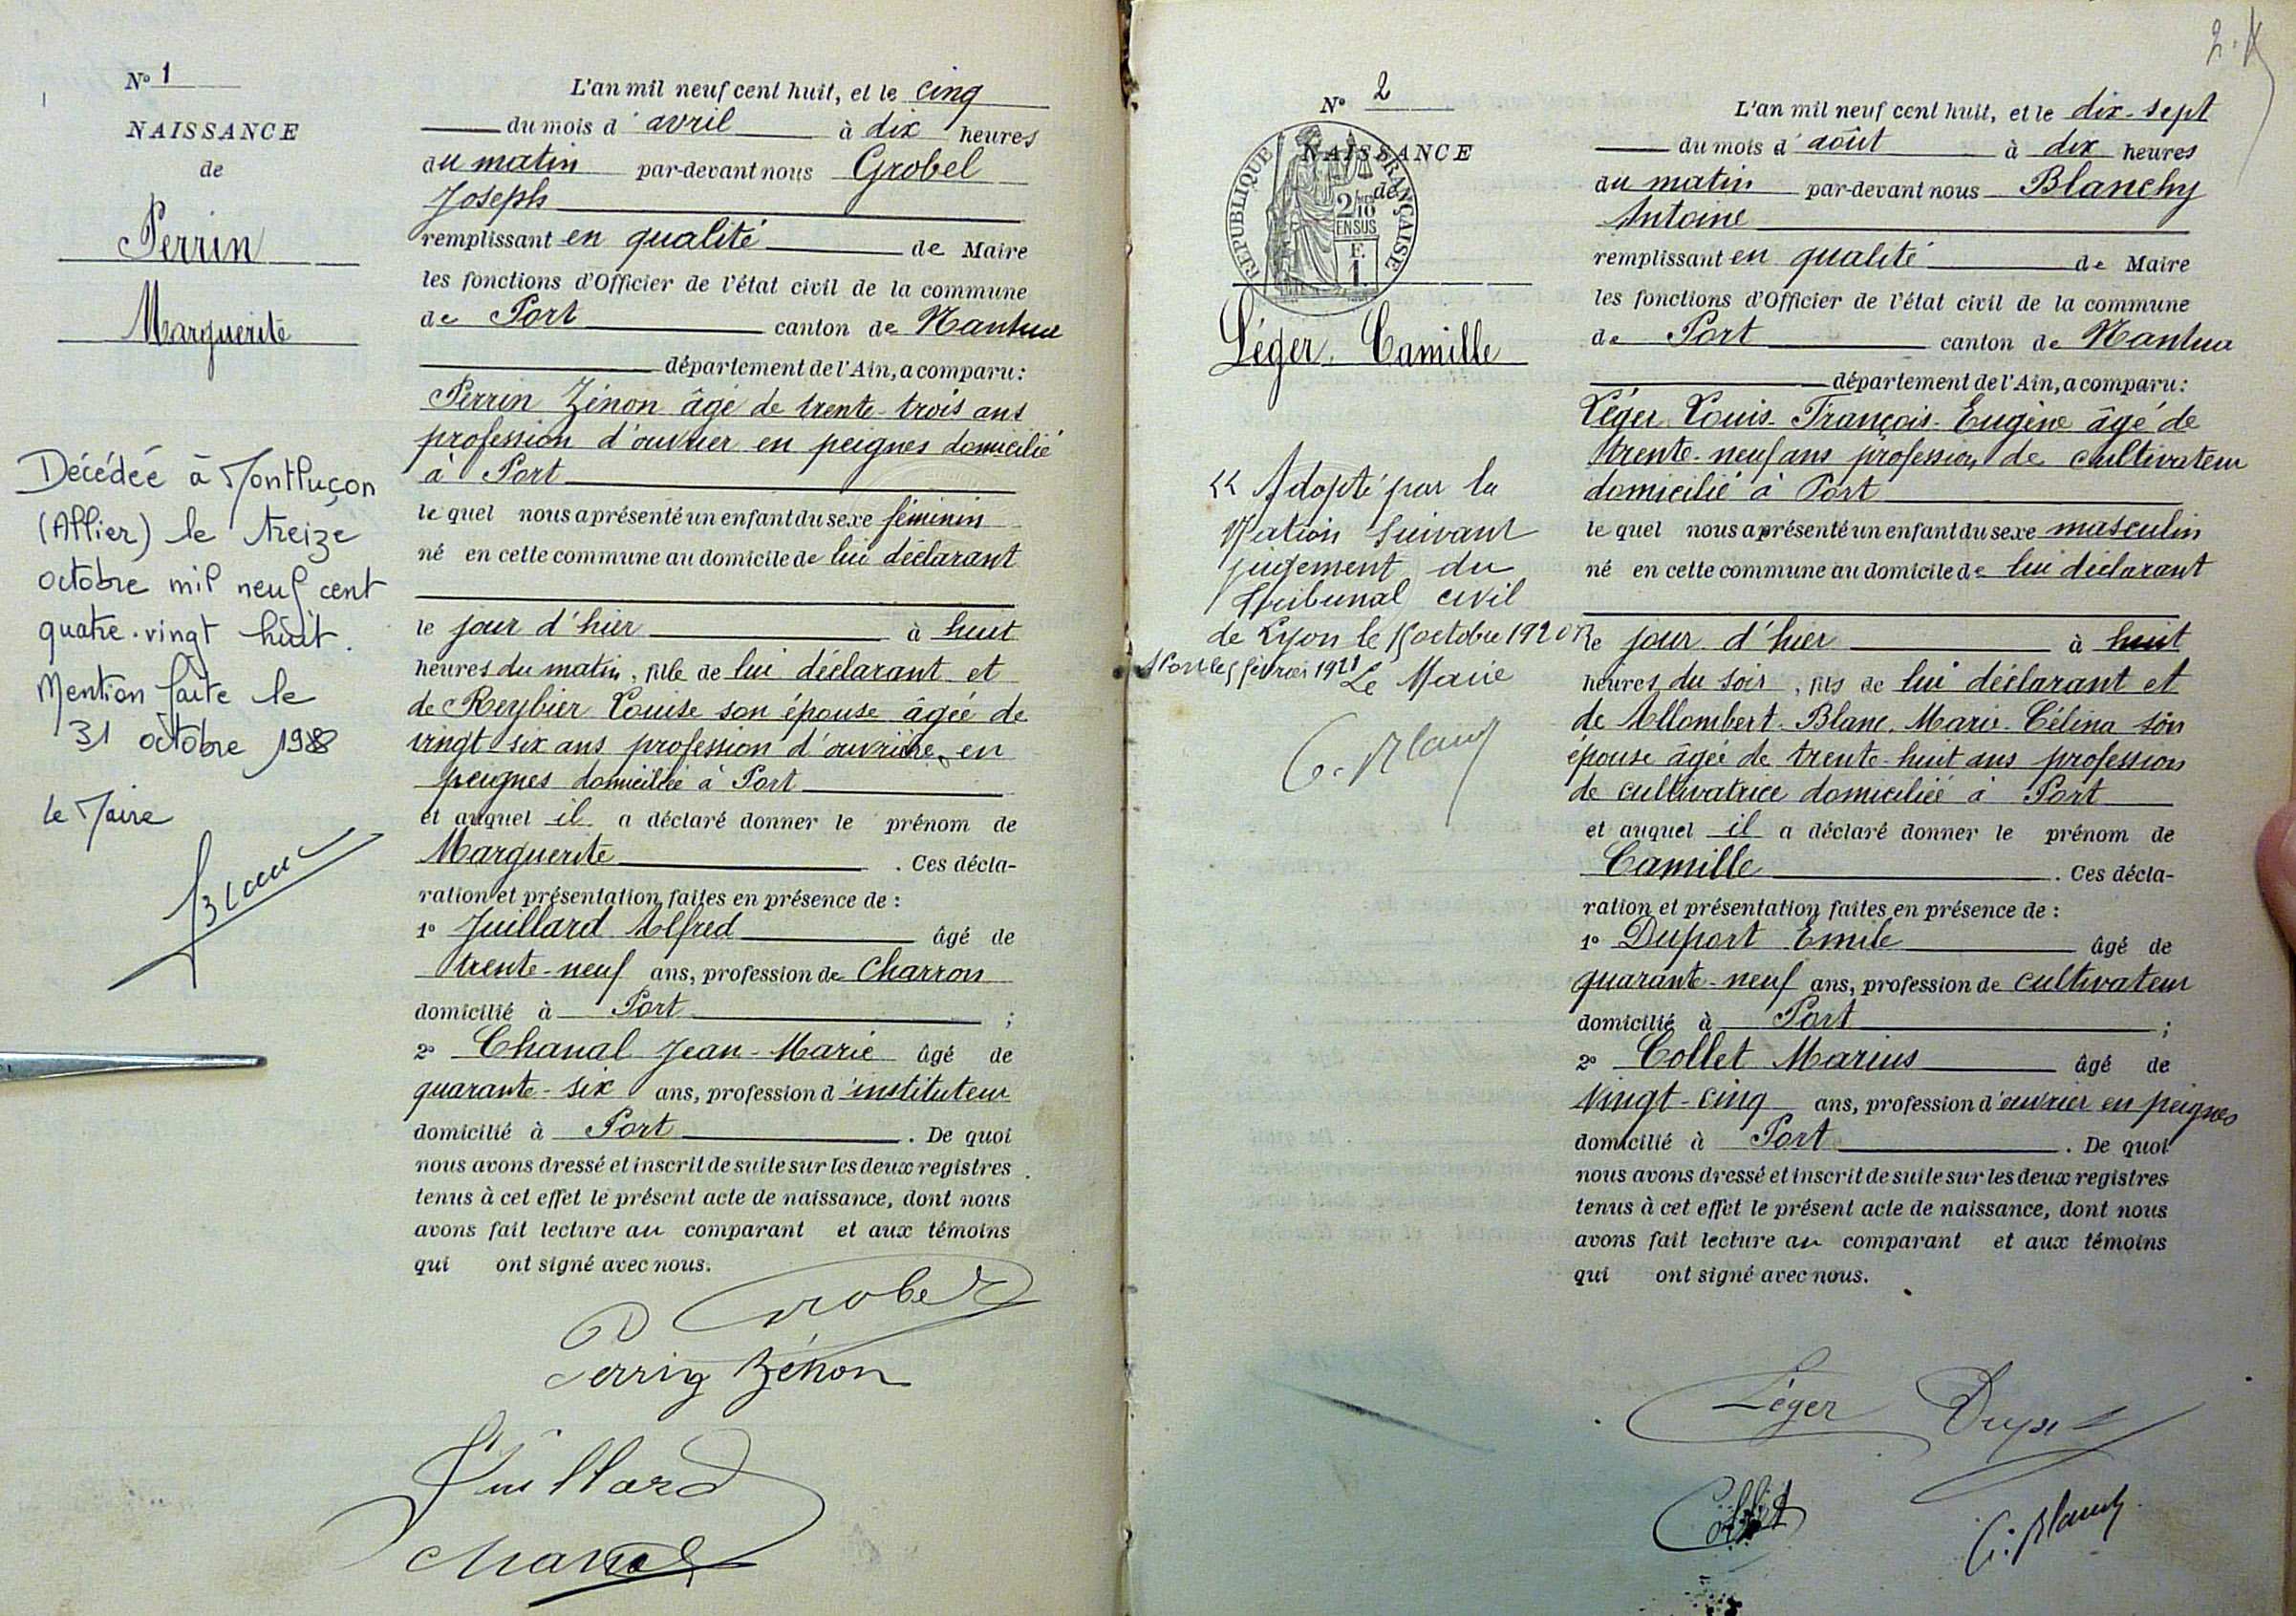 N° 1
NAISSANCE
de
Perrin
Marguerite
Décédée à Montluçon
(Allier) le treize
octobre mil neuf cent
quatre-vingt huit.
Mention faite le
31 octobre 1988
le Maire
L'an mil neuf cent huit, et le cinq
du mois d'avril à dix heures
du matin par-devant nous Grobel
Joseph
remplissant en qualité de Maire
les fonctions d'Officier de l'état civil de la commune
de Port canton de Nantua
département de l'Ain, a comparu :
Perrin Zénon âgé de trente-trois ans
profession d'ouvrier en peignes domicilié
à Port
le quel nous a présenté un enfant du sexe féminin
né en cette commune au domicile de lui déclarant
le jour d'hier à huit
heures du matin, fille de lui déclarant et
de Reybier Louise son épouse âgée de
vingt-six ans profession d'ouvrière en
peignes domiciliée à Port
et auquel il a déclaré donner le prénom de
Marguerite . Ces décla-
ration et présentation faites en présence de :
1° Juillard Alfred âgé de
trente-neuf ans, profession de Charron
domicilié à Port ;
2° Chanal Jean-Marie âgé de
quarante-six ans, profession d'instituteur
domicilié à Port . De quoi
nous avons dressé et inscrit de suite sur les deux registres
tenus à cet effet le présent acte de naissance, dont nous
avons fait lecture au comparant et aux témoins
qui ont signé avec nous.
Grobel
Perrin Zénon
Juillard
Chanal
2.
N° 2
NAISSANCE
de
REPUBLIQUE FRANÇAISE
2/10
EN SUS
F.
1.
Léger. Camille
"Adopté par la
Nation suivant
jugement du
Tribunal civil
de Lyon le 15 octobre 1920"
Le Maire
L'an mil neuf cent huit, et le dix-sept
du mois d'août à dix heures
du matin par-devant nous Blanchy
Antoine
remplissant en qualité de Maire
les fonctions d'Officier de l'état civil de la commune
de Port canton de Nantua
département de l'Ain, a comparu :
Léger Louis-François-Eugène âgé de
trente-neuf ans profession de cultivateur
domicilié à Port
le quel nous a présenté un enfant du sexe masculin
né en cette commune au domicile de lui déclarant
le jour d'hier à huit
heures du soir, fils de lui déclarant et
de Allombert-Blanc. Marie-Célina son
épouse âgée de trente-huit ans profession
de cultivatrice domiciliée à Port
et auquel il a déclaré donner le prénom de
Camille . Ces décla-
ration et présentation faites en présence de :
1° Duport Emile âgé de
quarante-neuf ans, profession de cultivateur
domicilié à Port ;
2° Collet Marius âgé de
vingt-cinq ans, profession d'ouvrier en peignes
domicilié à Port . De quoi
nous avons dressé et inscrit de suite sur les deux registres
tenus à cet effet le présent acte de naissance, dont nous
avons fait lecture au comparant et aux témoins
qui ont signé avec nous.
Léger
Collet